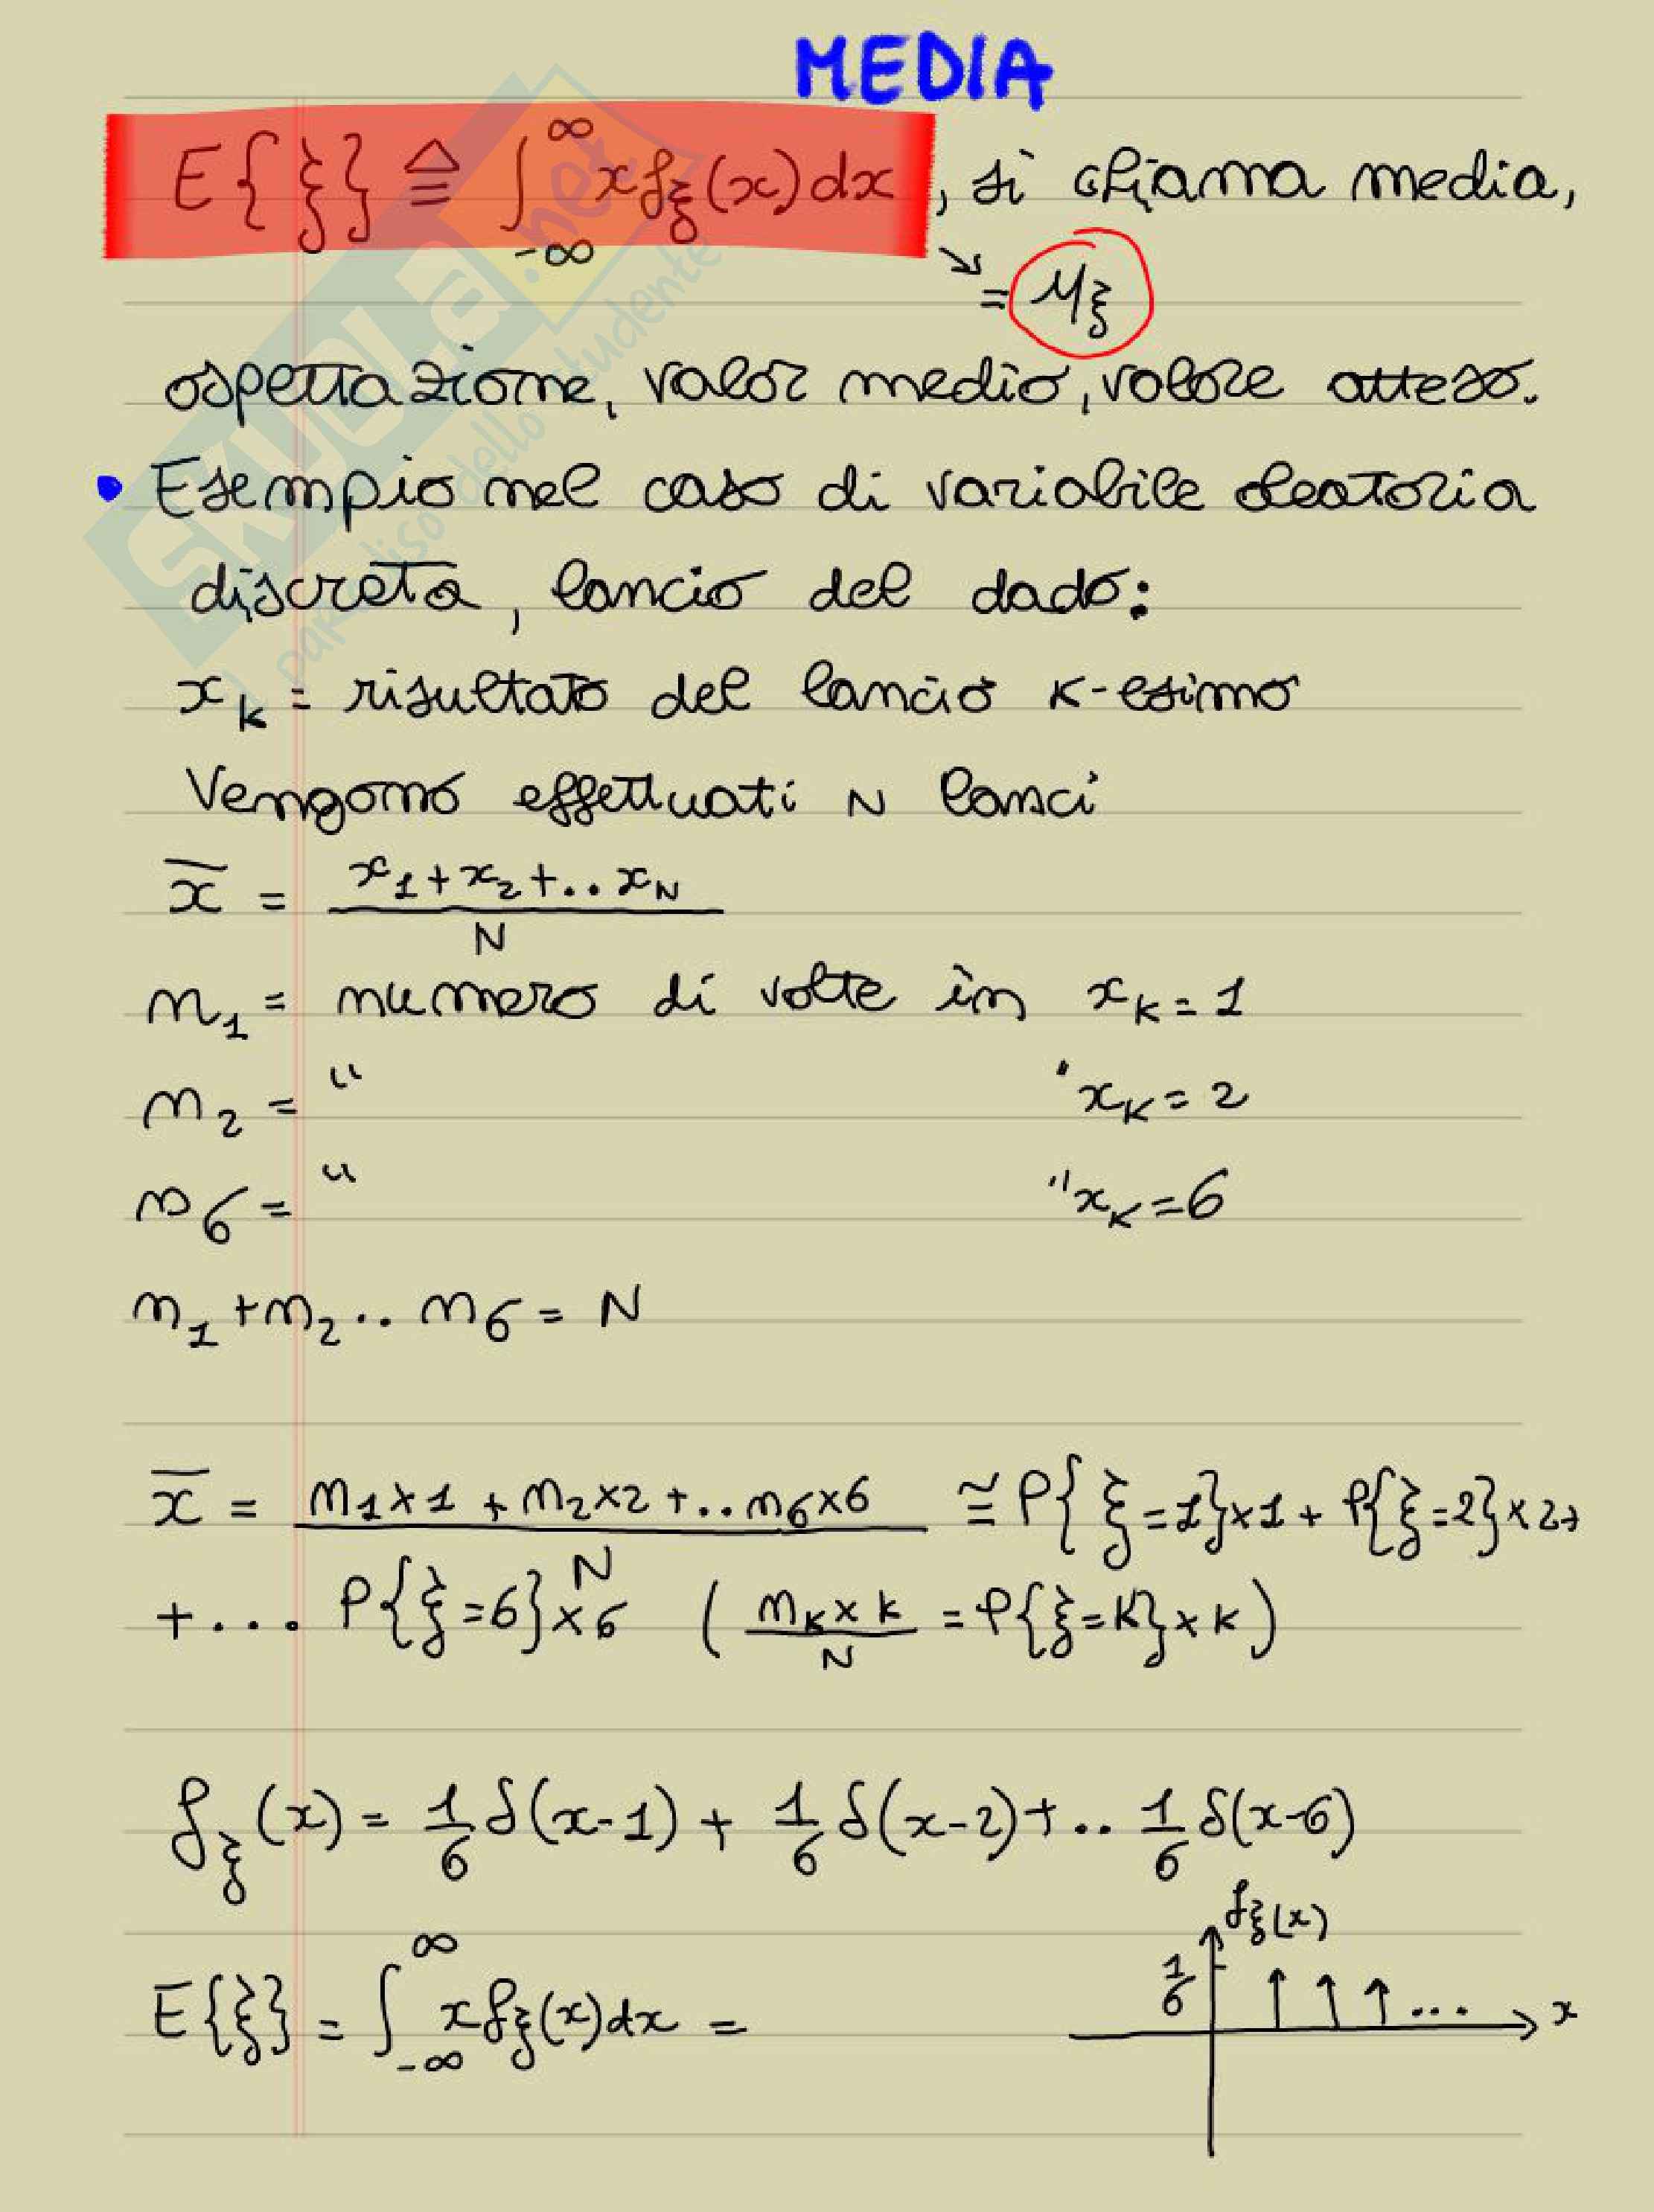 MEDIA
E{ξ} ≜ ∫_{-∞}^{∞} x f_ξ(x) dx , si chiama media,
↘ = μ_ξ
aspettazione, valor medio, valore atteso.
• Esempio nel caso di variabile aleatoria
discreta, lancio del dado:
x_k = risultato del lancio k-esimo
Vengono effettuati N lanci
x̄ = (x_1 + x_2 + .. x_N) / N
n_1 = numero di volte in x_k = 1
n_2 = " ' x_k = 2
n_6 = " " x_k = 6
n_1 + n_2 .. n_6 = N
x̄ = (n_1 × 1 + n_2 × 2 + .. n_6 × 6) / N ≅ P{ξ=1}×1 + P{ξ=2}×2+
+ ... P{ξ=6}×6 ( (n_k × k) / N = P{ξ=k}×k )
f_ξ(x) = 1/6 δ(x-1) + 1/6 δ(x-2) + .. 1/6 δ(x-6)
f_ξ(x)
E{ξ} = ∫_{-∞}^{∞} x f_ξ(x) dx =
1/6 ... x
SKUOLA.net
il paradiso dello studente